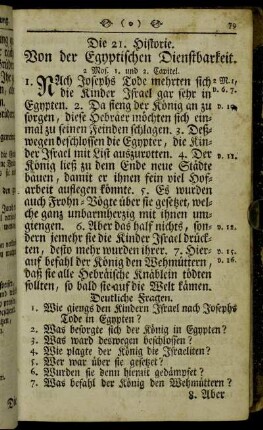 ( o ) 79
Die 21. Historie.
Von der Egyptischen Dienstbarkeit.
2 Mos. 1. und 2. Capitel.
1. NAch Josephs Tode mehrten sich 2 M. 1,
die Kinder Israel gar sehr in v. 6. 7.
Egypten. 2. Da fieng der König an zu v. 10.
sorgen, diese Hebräer möchten sich ein-
mal zu seinen Feinden schlagen. 3. Deß-
wegen beschlossen die Egypter, die Kin-
der Israel mit List auszurotten. 4. Der v. 11.
König ließ zu dem Ende neue Städte
bauen, damit er ihnen fein viel Hof-
arbeit auflegen könnte. 5. Es wurden
auch Frohn-Vögte über sie gesetzet, wel-
che ganz unbarmherzig mit ihnen um-
giengen. 6. Aber das half nichts, son- v. 12.
dern jemehr sie die Kinder Israel drück-
ten, desto mehr wurden ihrer. 7. Hier- v. 15.
auf befahl der König den Wehmüttern, v. 16.
daß sie alle Hebräische Knäblein tödten
sollten, so bald sie auf die Welt kämen.
Deutliche Fragen.
1. Wie giengs den Kindern Israel nach Josephs
Tode in Egypten?
2. Was besorgte sich der König in Egypten?
3. Was ward deswegen beschlossen?
4. Wie plagte der König die Israeliten?
5. Wer war über sie gesetzet?
6. Wurden sie denn hiemit gedämpfet?
7. Was befahl der König den Wehmüttern?
8. Aber